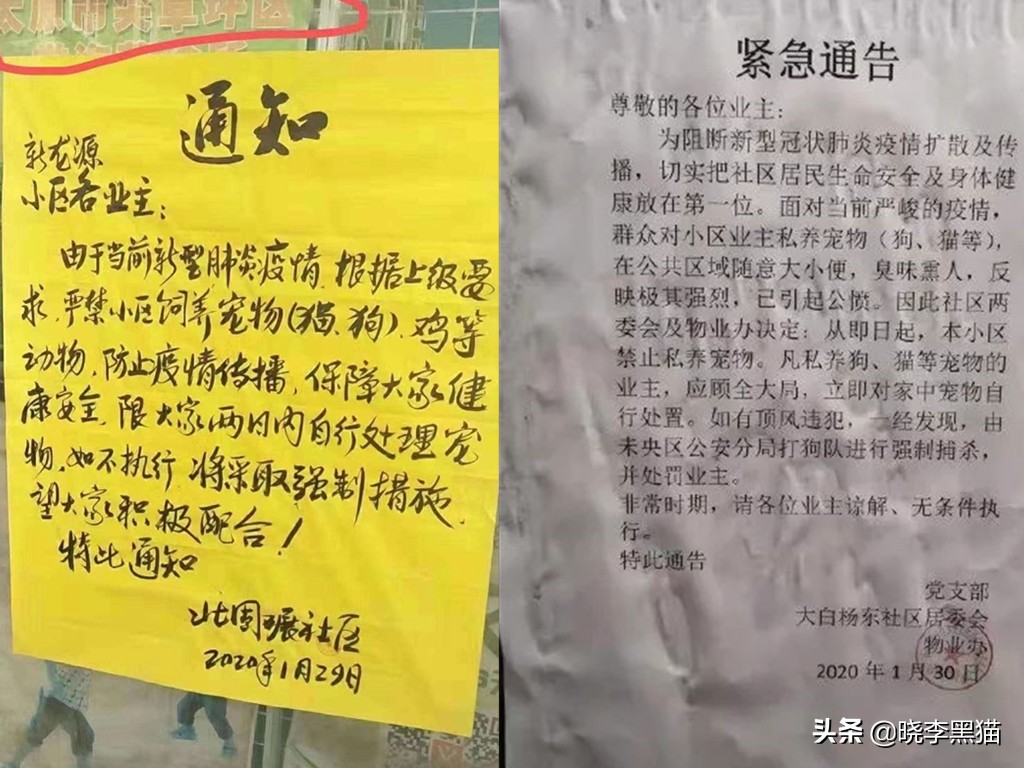 太原市尖草坪区
通知
新龙源
小区各业主:
由于当前新型肺炎疫情,根据上级要
求,严禁小区饲养宠物(猫、狗),鸡等
动物,防止疫情传播,保障大家健
康安全,限大家两日内自行处理宠
物,如不执行,将采取强制措施,
望大家积极配合!
特此通知
社区
2020年1月29日
紧急通告
尊敬的各位业主:
为阻断新型冠状肺炎疫情扩散及传
播,切实把社区居民生命安全及身体健
康放在第一位。面对当前严峻的疫情,
群众对小区业主私养宠物(狗、猫等),
在公共区域随意大小便,臭味熏人,反
映极其强烈,已引起公愤。因此社区两
委会及物业办决定:从即日起,本小区
禁止私养宠物。凡私养狗、猫等宠物的
业主,应顾全大局,立即对家中宠物自
行处置。如有顶风违犯,一经发现,由
未央区公安分局打狗队进行强制捕杀,
并处罚业主。
非常时期,请各位业主谅解、无条件执
行。
特此通告
党支部
大白杨东社区居委会
物业办
2020年1月30日
头条 @晓李黑猫